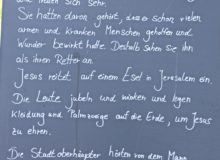 wie freuen sich sehr.
Sie hatten davon gehört, dass er schon vielen
armen und kranken Menschen geholfen und
Wunder bewirkt hatte. Deshalb sahen sie ihn
als ihren Retter an.
Jesus reitet auf einem Esel in Jerusalem ein.
Die Leute jubeln und winken und legen
Kleidung und Palmzweige auf die Erde, um Jesus
zu ehren.
Die Stadtoberhäupter hörten von dem Mann